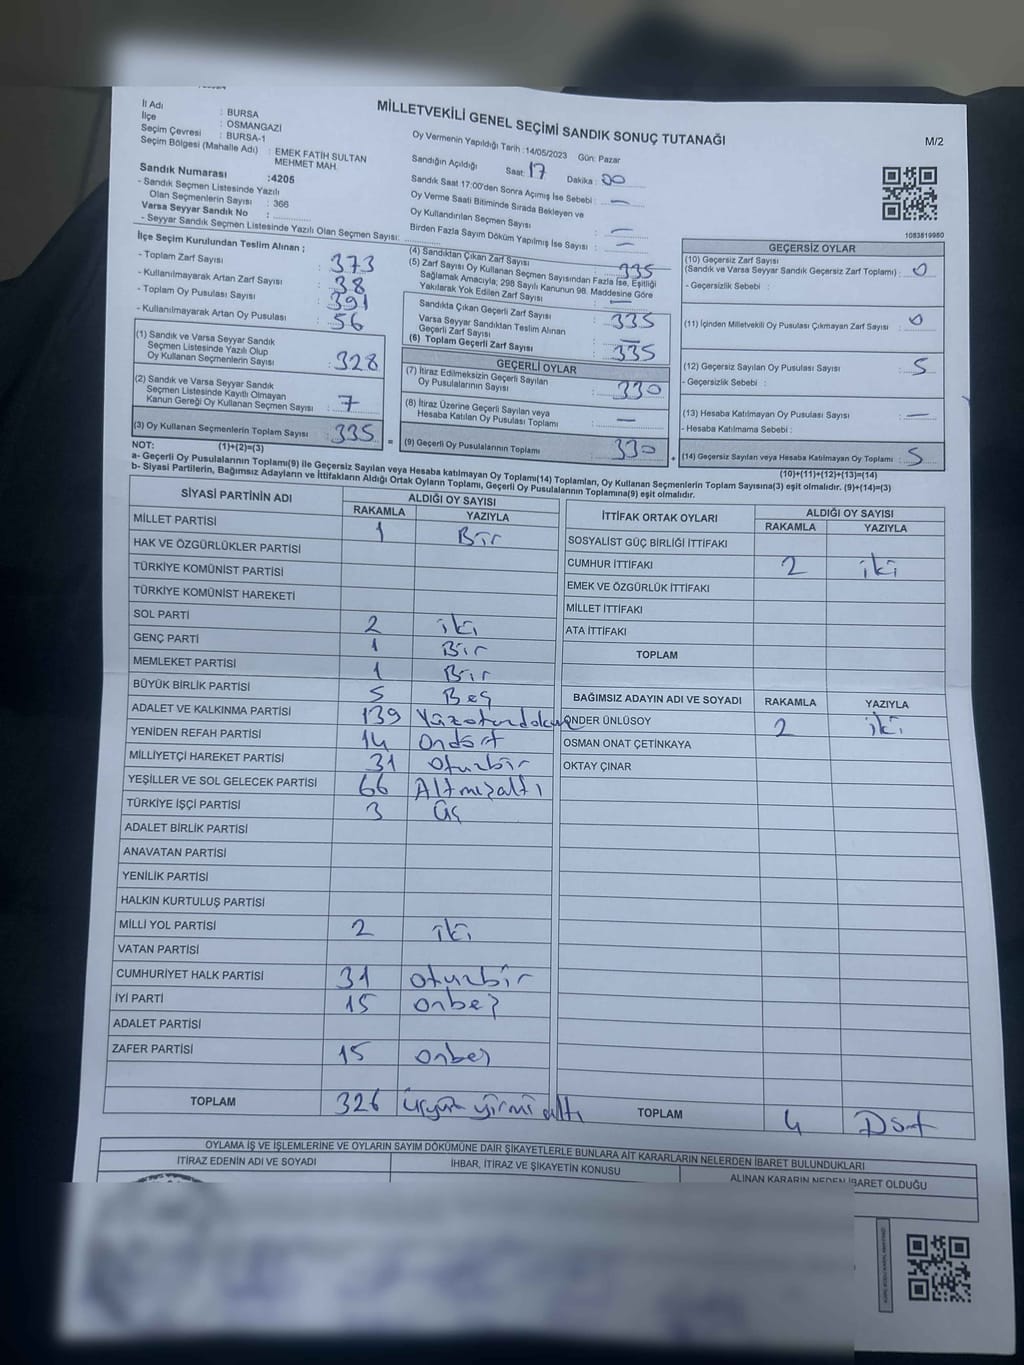 MİLLETVEKİLİ GENEL SEÇİMİ SANDIK SONUÇ TUTANAĞI
M/2
İl Adı : BURSA
İlçe : OSMANGAZİ
Seçim Çevresi : BURSA-1
Seçim Bölgesi (Mahalle Adı) : EMEK FATİH SULTAN MEHMET MAH.
Sandık Numarası :4205
- Sandık Seçmen Listesinde Yazılı
Olan Seçmenlerin Sayısı : 366
Varsa Seyyar Sandık No :
- Seyyar Sandık Seçmen Listesinde Yazılı Olan Seçmen Sayısı:
Oy Vermenin Yapıldığı Tarih :14/05/2023 Gün: Pazar
Sandığın Açıldığı Saat: 17 Dakika : 00
Sandık Saat 17:00'den Sonra Açımış İse Sebebi : —
Oy Verme Saati Bitiminde Sırada Bekleyen ve
Oy Kullandırılan Seçmen Sayısı : —
Birden Fazla Sayım Döküm Yapılmış İse Sayısı : —
1083819980
İlçe Seçim Kurulundan Teslim Alınan ;
- Toplam Zarf Sayısı : 373
- Kullanılmayarak Artan Zarf Sayısı : 38
- Toplam Oy Pusulası Sayısı : 391
- Kullanılmayarak Artan Oy Pusulası : 56
(1) Sandık ve Varsa Seyyar Sandık
Seçmen Listesinde Yazılı Olup
Oy Kullanan Seçmenlerin Sayısı : 328
(2) Sandık ve Varsa Seyyar Sandık
Seçmen Listesinde Kayıtlı Olmayan
Kanun Gereği Oy Kullanan Seçmen Sayısı : 7
(3) Oy Kullanan Seçmenlerin Toplam Sayısı : 335
(4) Sandıktan Çıkan Zarf Sayısı : 335
(5) Zarf Sayısı Oy Kullanan Seçmen Sayısından Fazla İse, Eşitliği
Sağlamak Amacıyla; 298 Sayılı Kanunun 98. Maddesine Göre
Yakılarak Yok Edilen Zarf Sayısı : —
Sandıkta Çıkan Geçerli Zarf Sayısı : 335
Varsa Seyyar Sandıktan Teslim Alınan
Geçerli Zarf Sayısı : —
(6) Toplam Geçerli Zarf Sayısı : 335
GEÇERLİ OYLAR
(7) İtiraz Edilmeksizin Geçerli Sayılan
Oy Pusulalarının Sayısı : 330
(8) İtiraz Üzerine Geçerli Sayılan veya
Hesaba Katılan Oy Pusulası Toplamı : —
=
(9) Geçerli Oy Pusulalarının Toplamı : 330
+
GEÇERSİZ OYLAR
(10) Geçersiz Zarf Sayısı
(Sandık ve Varsa Seyyar Sandık Geçersiz Zarf Toplamı) : 0
- Geçersizlik Sebebi :
(11) İçinden Milletvekili Oy Pusulası Çıkmayan Zarf Sayısı : 0
(12) Geçersiz Sayılan Oy Pusulası Sayısı : 5
- Geçersizlik Sebebi :
(13) Hesaba Katılmayan Oy Pusulası Sayısı : —
- Hesaba Katılmama Sebebi :
(14) Geçersiz Sayılan veya Hesaba Katılmayan Oy Toplamı : 5
NOT: (1)+(2)=(3)
(10)+(11)+(12)+(13)=(14)
a- Geçerli Oy Pusulalarının Toplamı(9) ile Geçersiz Sayılan veya Hesaba katılmayan Oy Toplamı(14) Toplamları, Oy Kullanan Seçmenlerin Toplam Sayısına(3) eşit olmalıdır. (9)+(14)=(3)
b- Siyasi Partilerin, Bağımsız Adayların ve İttifakların Aldığı Ortak Oyların Toplamı, Geçerli Oy Pusulalarının Toplamına(9) eşit olmalıdır.
SİYASİ PARTİNİN ADI ALDIĞI OY SAYISI
RAKAMLA YAZIYLA
MİLLET PARTİSİ 1 Bir
HAK VE ÖZGÜRLÜKLER PARTİSİ
TÜRKİYE KOMÜNİST PARTİSİ
TÜRKİYE KOMÜNİST HAREKETİ
SOL PARTİ 2 iki
GENÇ PARTİ 1 Bir
MEMLEKET PARTİSİ 1 Bir
BÜYÜK BİRLİK PARTİSİ 5 Beş
ADALET VE KALKINMA PARTİSİ 139 Yüzotuzdokuz
YENİDEN REFAH PARTİSİ 14 ondört
MİLLİYETÇİ HAREKET PARTİSİ 31 otuzbir
YEŞİLLER VE SOL GELECEK PARTİSİ 66 Altmışaltı
TÜRKİYE İŞÇİ PARTİSİ 3 üç
ADALET BİRLİK PARTİSİ
ANAVATAN PARTİSİ
YENİLİK PARTİSİ
HALKIN KURTULUŞ PARTİSİ
MİLLİ YOL PARTİSİ 2 iki
VATAN PARTİSİ
CUMHURİYET HALK PARTİSİ 31 otuzbir
İYİ PARTİ 15 onbeş
ADALET PARTİSİ
ZAFER PARTİSİ 15 onbeş
TOPLAM 326 üçyüz yirmi altı
İTTİFAK ORTAK OYLARI ALDIĞI OY SAYISI
RAKAMLA YAZIYLA
SOSYALİST GÜÇ BİRLİĞİ İTTİFAKI
CUMHUR İTTİFAKI 2 iki
EMEK VE ÖZGÜRLÜK İTTİFAKI
MİLLET İTTİFAKI
ATA İTTİFAKI
TOPLAM
BAĞIMSIZ ADAYIN ADI VE SOYADI RAKAMLA YAZIYLA
ÖNDER ÜNLÜSOY 2 iki
OSMAN ONAT ÇETİNKAYA
OKTAY ÇINAR
TOPLAM 4 Dört
OYLAMA İŞ VE İŞLEMLERİNE VE OYLARIN SAYIM DÖKÜMÜNE DAİR ŞİKAYETLERLE BUNLARA AİT KARARLARIN NELERDEN İBARET BULUNDUKLARI
İTİRAZ EDENİN ADI VE SOYADI İHBAR, İTİRAZ VE ŞİKAYETİN KONUSU ALINAN KARARIN NEDEN İBARET OLDUĞU